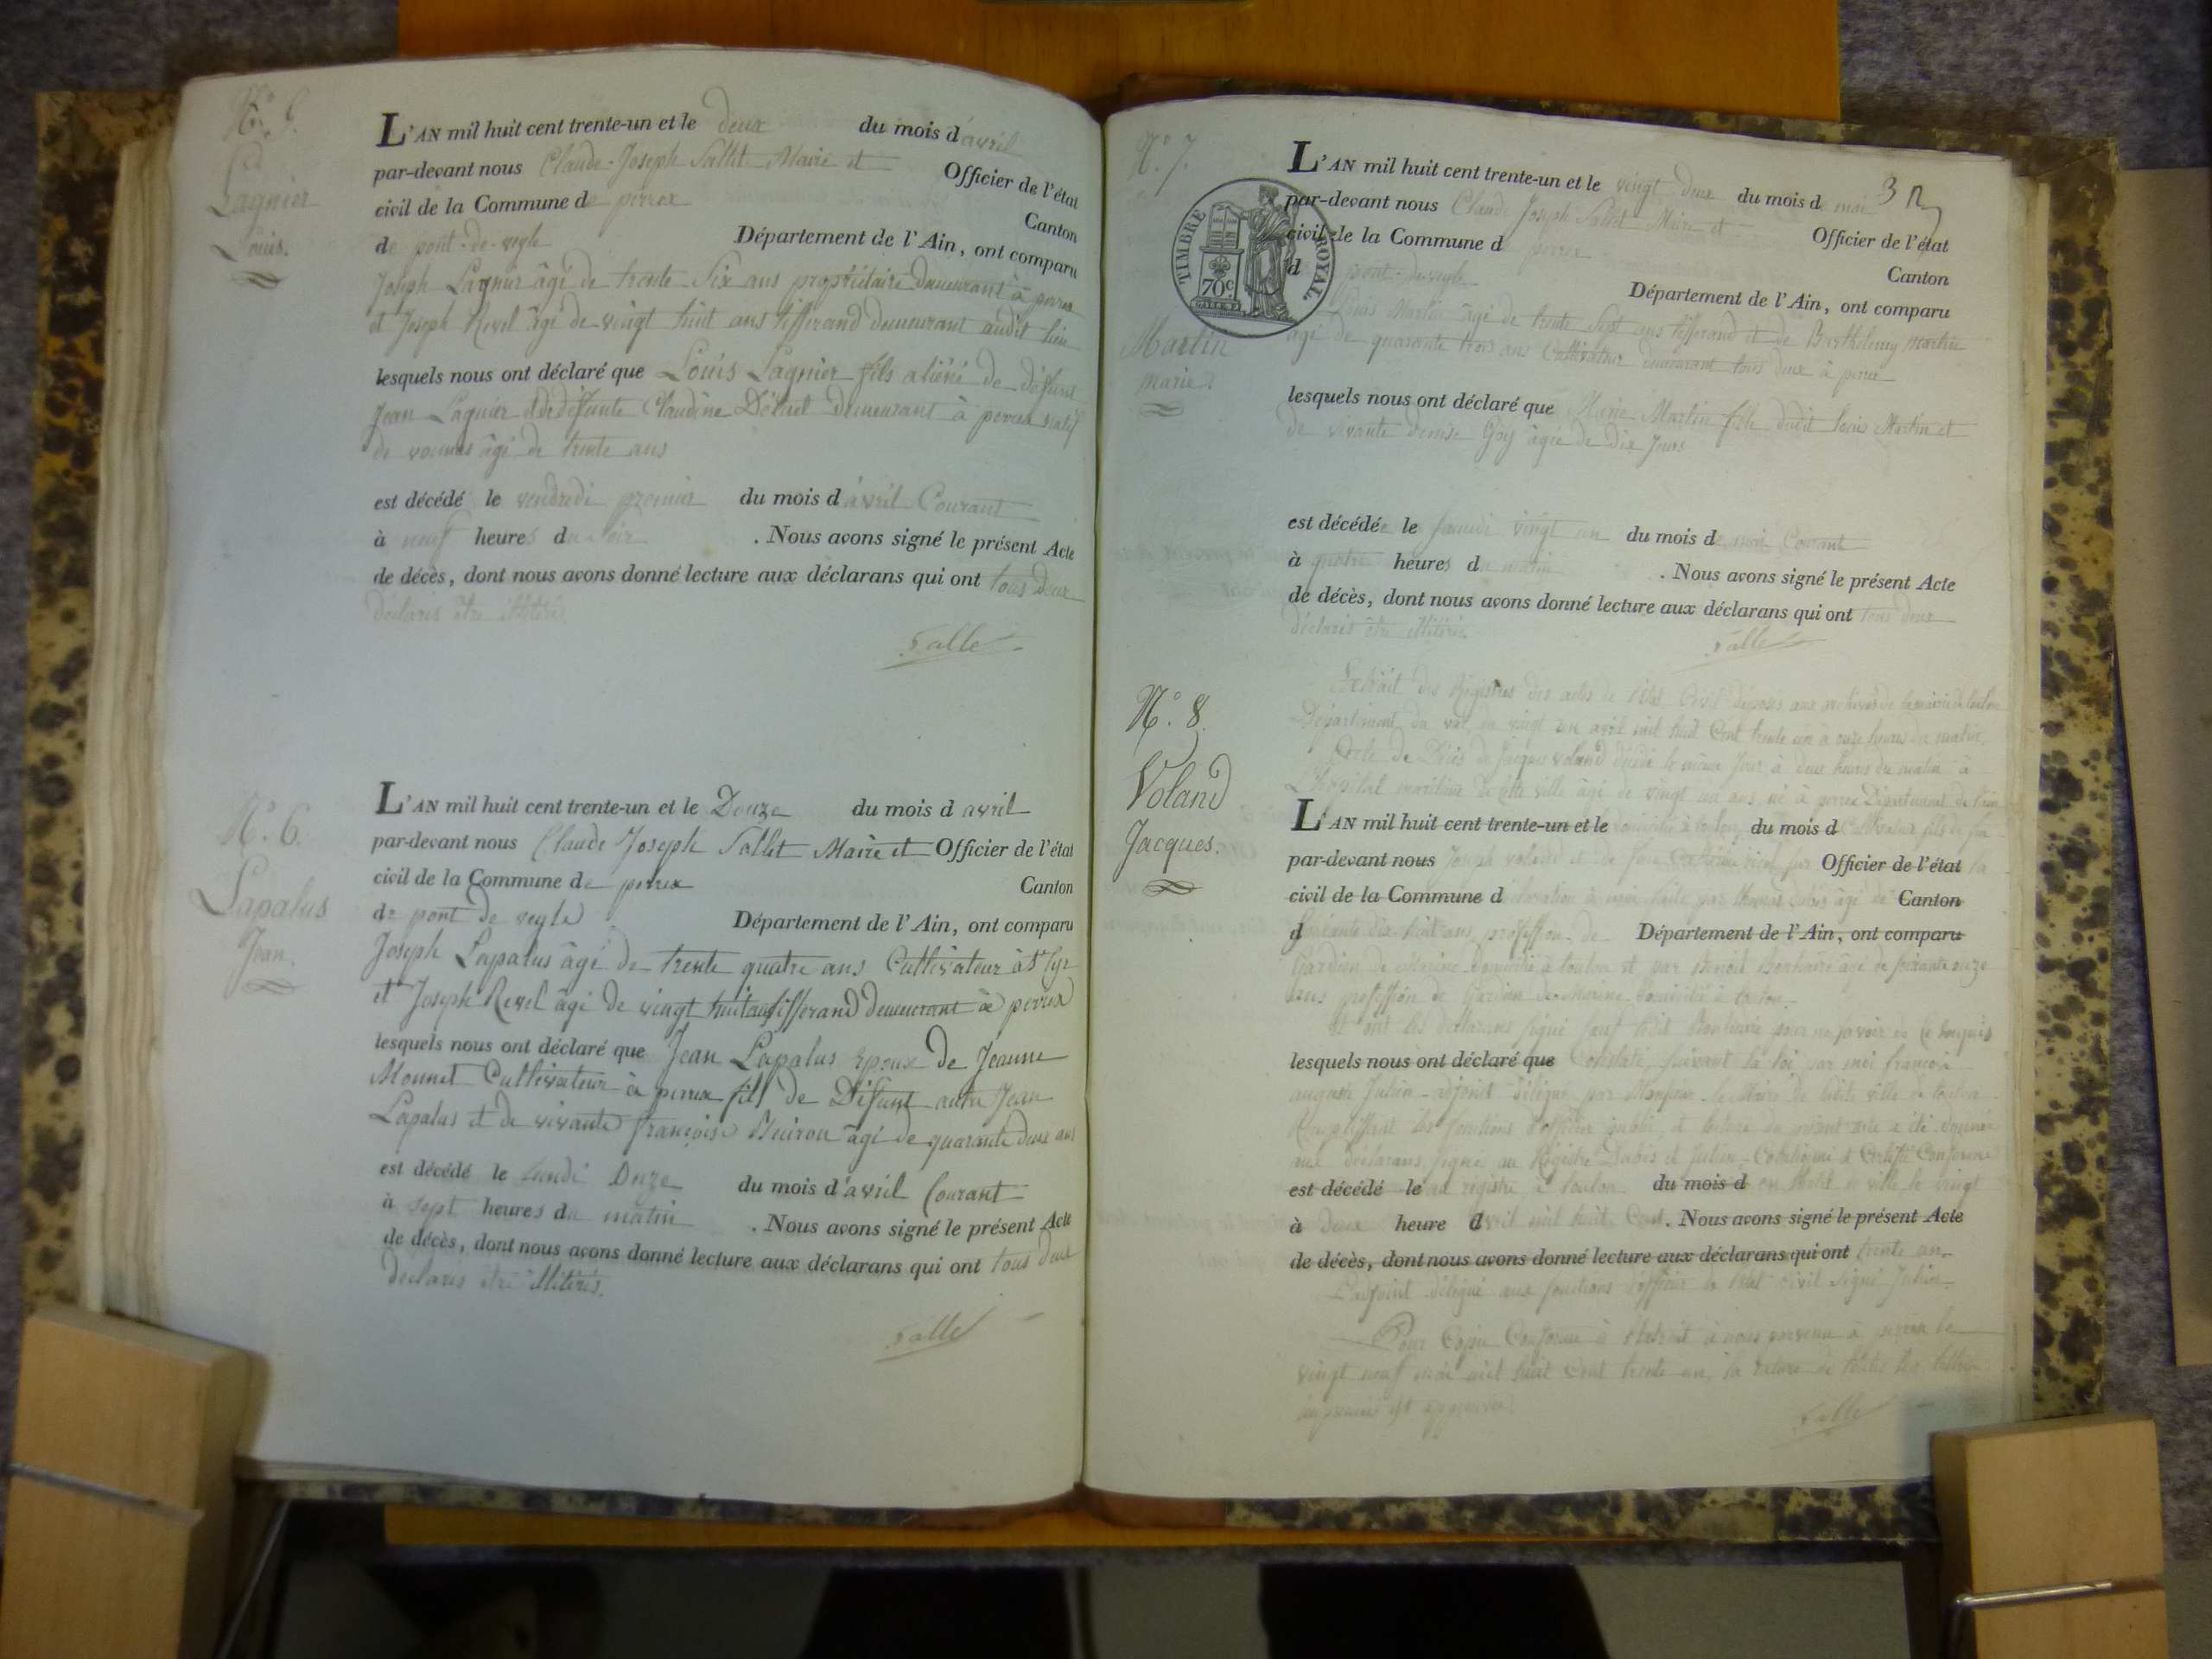 N.° 5.
Lagnier
Louis.
L'AN mil huit cent trente-un et le deux du mois d'avril
par-devant nous Claude-Joseph Sallet Maire et Officier de l'état
civil de la Commune de perrex Canton
de pont-de-veyle Département de l'Ain, ont comparu
Joseph Lagnier âgé de trente Six ans propriétaire Demeurant à perrex
et Joseph Revel âgé de vingt huit ans tisserand demeurant audit lieu
lesquels nous ont déclaré que Louis Lagnier fils aliéné de défunt
Jean Lagnier et de défunte Claudine Demeurant à perrex natif
de vonnas âgé de trente ans
est décédé le vendredi premier du mois d'avril Courant
à neuf heures du soir . Nous avons signé le présent Acte
de décès, dont nous avons donné lecture aux déclarans qui ont tous Deux
déclarés être illitérés
Sallet
N.° 6.
Lapalus
Jean.
L'AN mil huit cent trente-un et le Douze du mois d avril
par-devant nous Claude Joseph Sallet Maire et Officier de l'état
civil de la Commune de perrex Canton
de pont de veyle Département de l'Ain, ont comparu
Joseph Lapalus âgé de trente quatre ans Cultivateur à St Cyr
et Joseph Revel âgé de vingt huit ans tisserand demeurant à perrex
lesquels nous ont déclaré que Jean Lapalus Epoux de Jeanne
Monnet Cultivateur à perrex fils de Défunt autre Jean
Lapalus et de vivante françoise âgé de quarante deux ans
est décédé le lundi Onze du mois d'avril Courant
à sept heures du matin . Nous avons signé le présent Acte
de décès, dont nous avons donné lecture aux déclarans qui ont tous deux
declarés être illitérés.
Sallet
N.° 7.
Martin
marie.
TIMBRE ROYAL
70c
L'AN mil huit cent trente-un et le vingt deux du mois de mai
par-devant nous Claude Joseph Sallet Maire et Officier de l'état
civil de la Commune d perrex Canton
d pont-de-veyle Département de l'Ain, ont comparu
Louis Martin âgé de trente Sept ans tisserand et de Barthélemy Martin
âgé de quarante trois ans Cultivateur demeurant tous deux à perrex
lesquels nous ont déclaré que Marie Martin fille dudit Louis Martin et
de vivante denise Goy âgée de Dix Jours
est décédée le Samedi vingt un du mois de mai Courant
à quatre heures du matin . Nous avons signé le présent Acte
de décès, dont nous avons donné lecture aux déclarans qui ont tous deux
déclarés être illitérés
Sallet
N.° 8.
Voland
Jacques.
Extrait des Régistres des actes de l'état Civil déposés aux archives de la mairie de toulon
Département du var, du vingt un avril mil huit Cent trente un à onze heures du matin.
Acte de Décès de Jacques Voland décédé le même Jour à deux heures du matin à
L'hopital maritime de cette ville âgé de vingt un ans, né à perrex Département de l'ain
L'AN mil huit cent trente-un et le du mois d Cultivateur fils de feu
par-devant nous Joseph voland et de Officier de l'état
civil de la Commune d déclaration à moi faite par âgé de Canton
d Soixante dix huit ans, profession de Département de l'Ain, ont comparu
Gardien de Marine domicilié à toulon et par Benoit âgé de soixante onze
ans profession de Gardien de Marine domicilié à toulon.
et ont les déclarans signé sauf ledit pour ne savoir de ce requis
lesquels nous ont déclaré que Constaté suivant la loi par moi françois
auguste Julien adjoint délégué par Monsieur le Maire de ladite ville de toulon
Remplissant les fonctions d'officier public et lecture du présent acte a été donnée
aux déclarans, signé au Régistre et Julien - Collationné et Certifié Conforme
est décédé le au registre à toulon du mois d en l'hotel de ville le vingt
à deux heure d avril mil huit Cent . Nous avons signé le présent Acte
de décès, dont nous avons donné lecture aux déclarans qui ont trente un.
L'adjoint délégué aux fonctions d'officier de l'état civil signé Julien.
Pour Copie Conforme à l'extrait à nous parvenu à perrex le
vingt neuf mai mil huit cent trente un, la rature de toutes les lettres
imprimées est approuvée.
Sallet